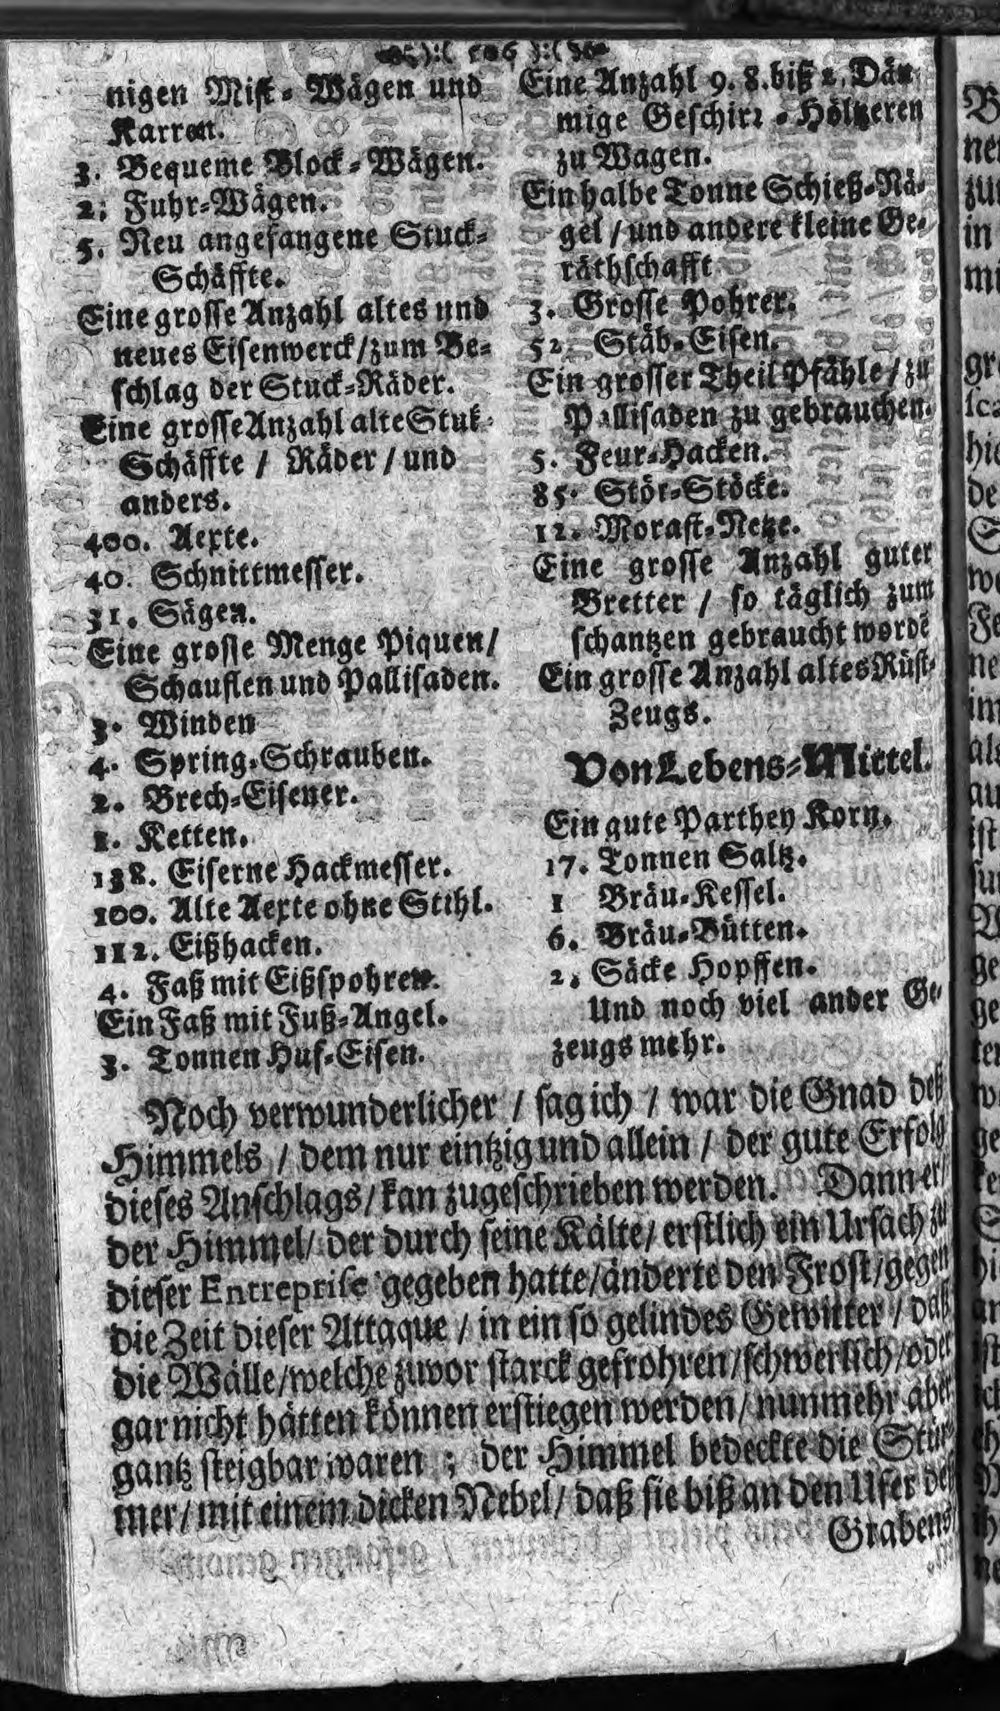 ):( 186 ):(
nigen Mist- Wägen und
Karren.
3. Bequeme Block-Wägen.
2. Fuhr-Wägen.
5. Neu angefangene Stuck-
Schäffte.
Eine grosse Anzahl altes und
neues Eisenwerck/zum Be-
schlag der Stuck-Räder.
Eine grosse Anzahl alte Stuk-
Schäffte / Räder / und
anders.
400. Aexte.
40. Schnittmesser.
31. Sägen.
Eine grosse Menge Piquen/
Schauflen und Pallisaden.
3. Winden
4. Spring-Schrauben.
2. Brech-Eisener.
1. Ketten.
138. Eiserne Hackmesser.
100. Alte Aexte ohne Stihl.
112. Eißhacken.
4. Faß mit Eißspohren.
Ein Faß mit Fuß-Angel.
3. Tonnen Huf-Eisen.
Eine Anzahl 9. 8. biß 2. Däu-
mige Geschirr - Höltzeren
zu Wagen.
Ein halbe Tonne Schieß-Nä-
gel / und andere kleine Ge-
räthschafft
3. Grosse Pohrer.
52. Stäb-Eisen.
Ein grosser Theil Pfähle / zu
Pallisaden zu gebrauchen.
5. Feur-Hacken.
85. Stör-Stöcke.
12. Morast-Netze.
Eine grosse Anzahl guter
Bretter / so täglich zum
schantzen gebraucht wordē
Ein grosse Anzahl altes Rüst-
Zeugs.
Von Lebens-Mittel.
Ein gute Parthey Korn.
17. Tonnen Saltz.
1 Bräu-Kessel.
6. Bräu-Bütten.
2. Säcke Hopffen.
Und noch viel ander Ge-
zeugs mehr.
Noch verwunderlicher / sag ich / war die Gnad deß
Himmels / dem nur eintzig und allein / der gute Erfolg
dieses Anschlags / kan zugeschrieben werden. Dann er/
der Himmel/ der durch seine Kälte/ erstlich ein Ursach zu
dieser Entreprise gegeben hatte/änderte den Frost/gegen
die Zeit dieser Attaque / in ein so gelindes Gewitter / daß
die Wälle/welche zuvor starck gefrohren/schwerlich/oder
gar nicht hätten können erstiegen werden/ nunmehr aber
gantz steigbar waren ; der Himmel bedeckte die Stür-
mer/ mit einem dicken Nebel/ daß sie biß an den Ufer deß
Grabens